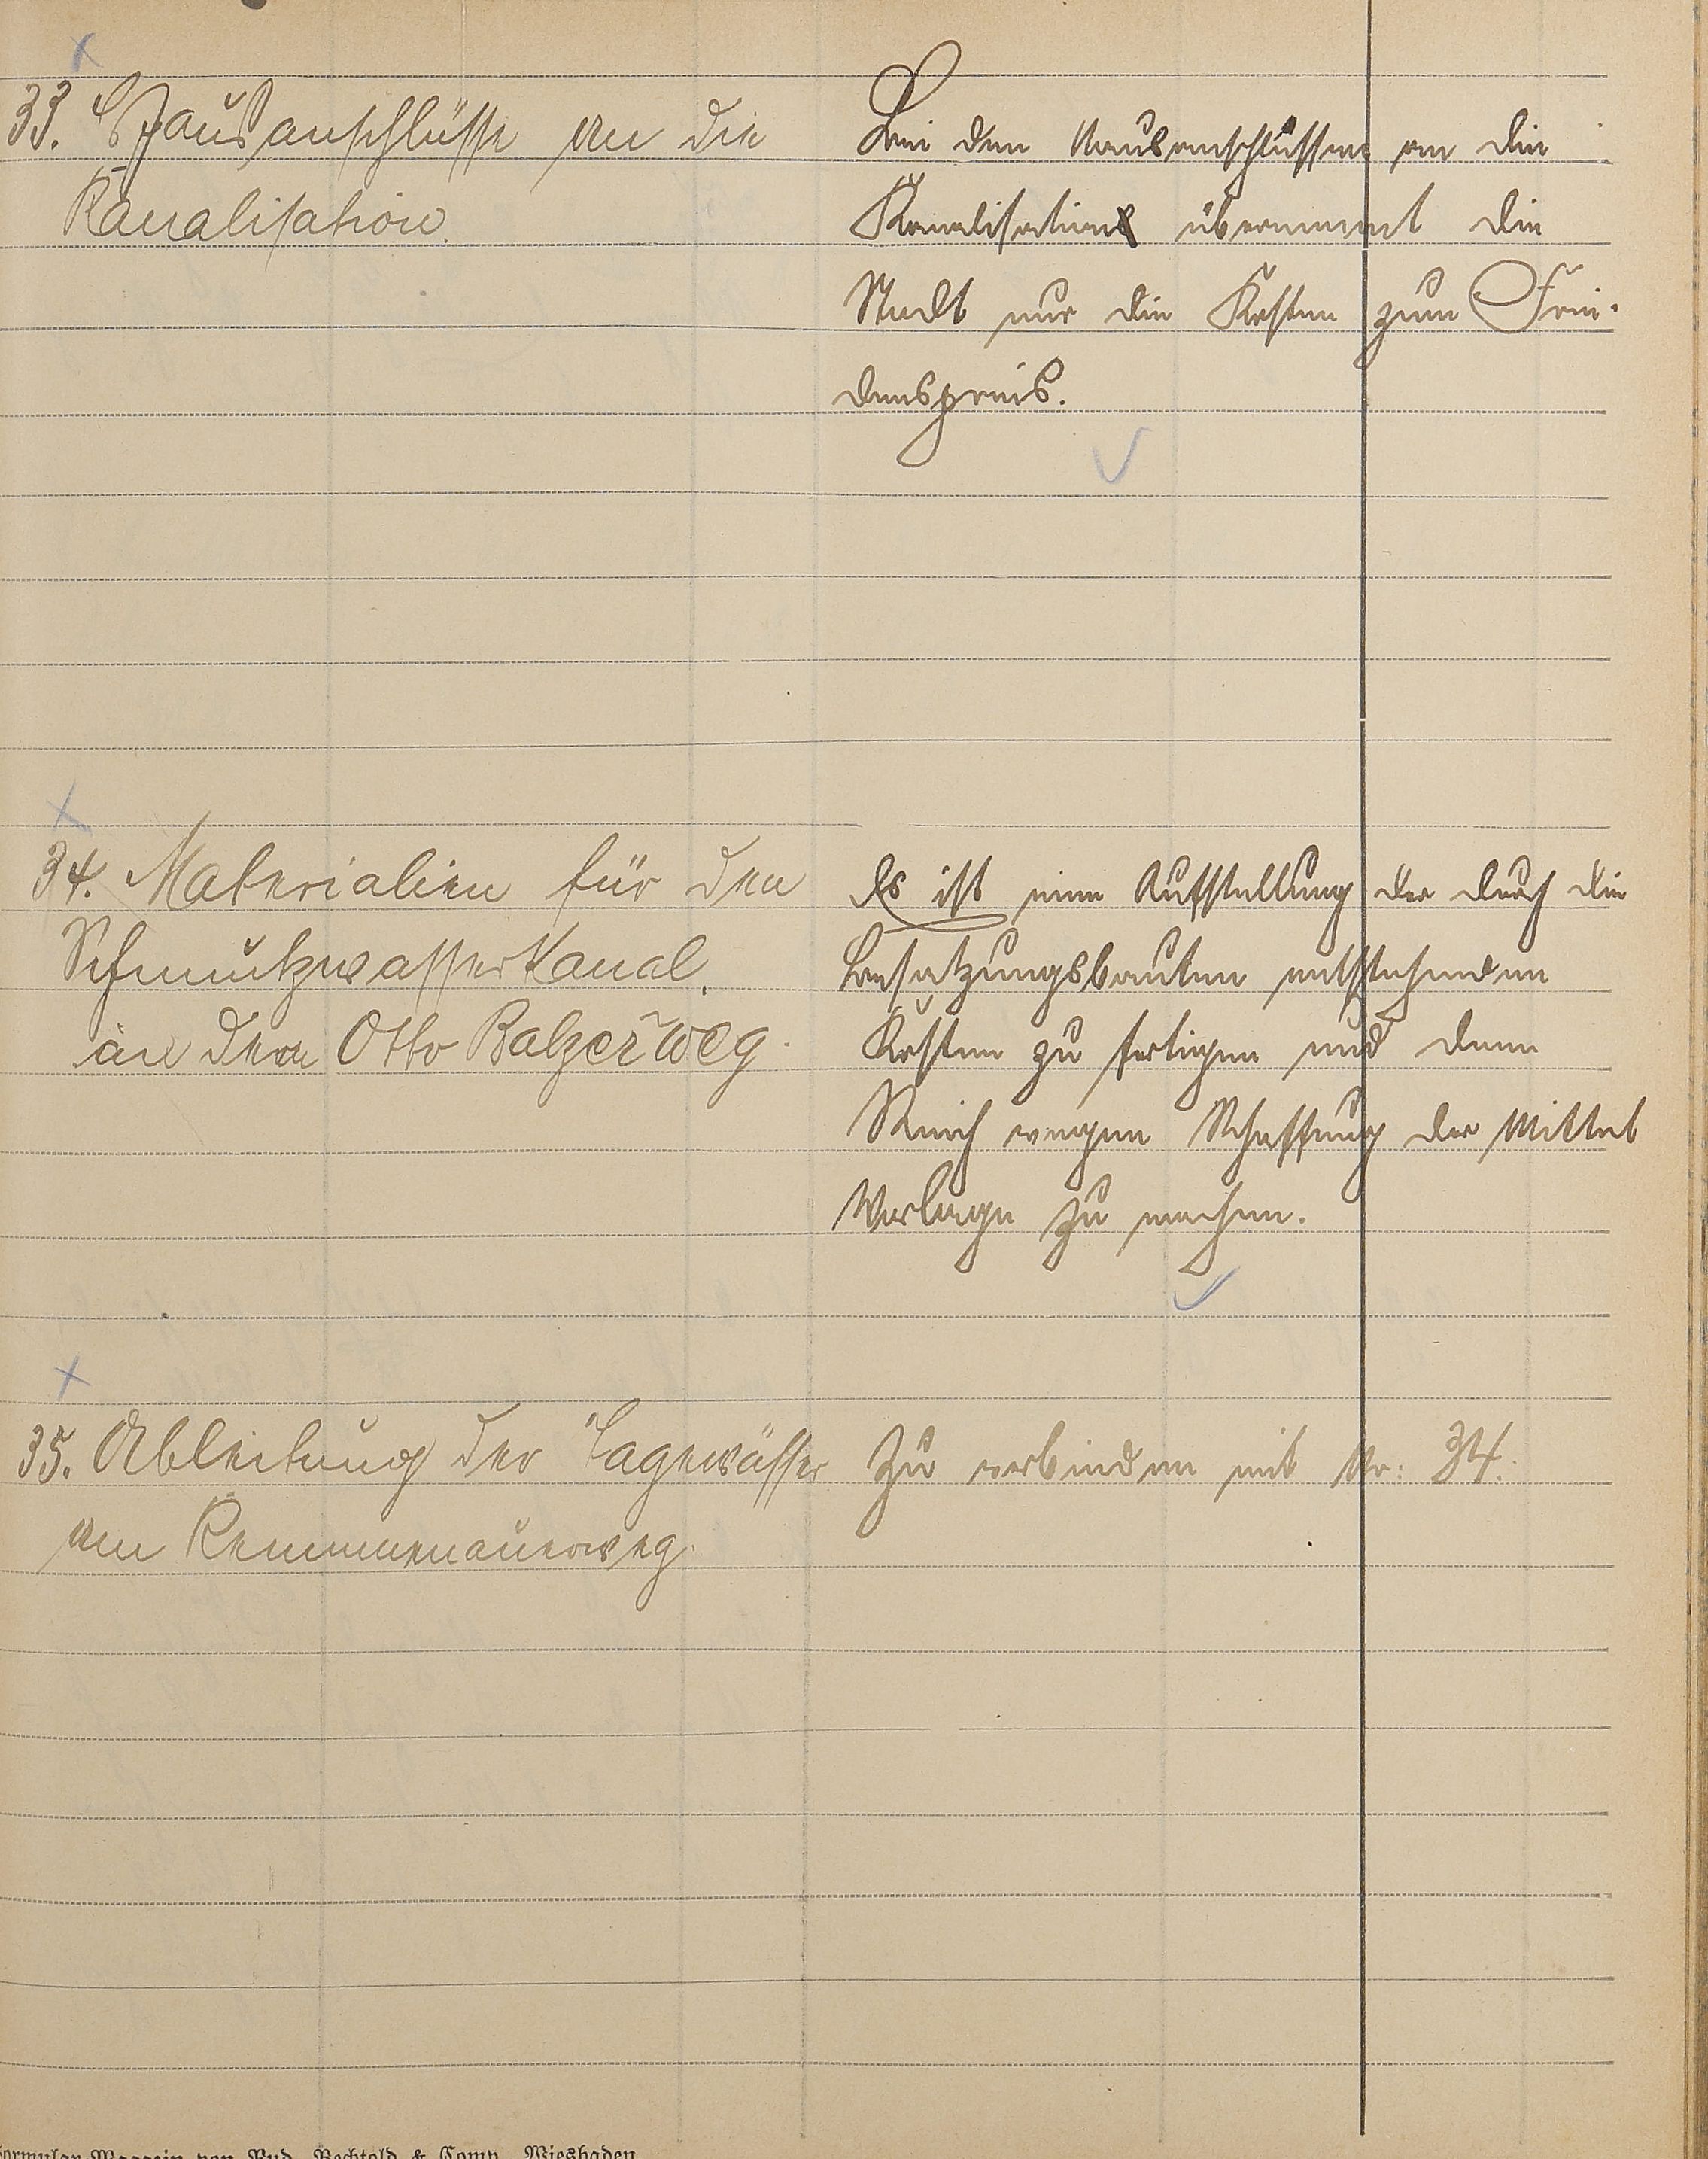 33. Hausanschlüsse an die
Kanalisation.
Bei den Hausanschlüssen an die
Kanalisation übernimmt die
Stadt nur die Kosten zum Frie-
denspreis.
34. Materialien für den
Schmutzwasserkanal.
in dem Otto Balzerweg.
Es ist eine Aufstellung der durch die
Besatzungsbauten entstehenden
Kosten zu fertigen und dem
Reich wegen Schaffung der Mittel
Vorlage zu machen.
35. Ableitung der Tagewässer
am Kemmenauerweg.
Zu verbinden mit Nr: 34.
Formular-Magazin von Rud. Bechtold & Comp., Wiesbaden